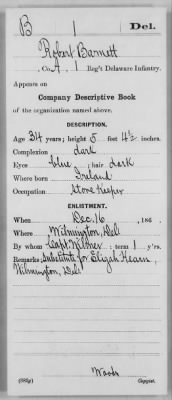 B 1 Del.
Robert Barnett
, Co. A, 1 Reg't Delaware Infantry.
Appears on
Company Descriptive Book
of the organization named above.
DESCRIPTION.
Age 34 years; height 5 feet 4½ inches.
Complexion dark
Eyes blue; hair dark
Where born Ireland
Occupation Store Keeper
ENLISTMENT.
When Dec. 16, 186 .
Where Wilmington, Del
By whom Capt. ; term 1 y'rs.
Remarks: Substitute for Elijah Hearn,
Wilmington, Del.
Woods
(383g) Copyist.